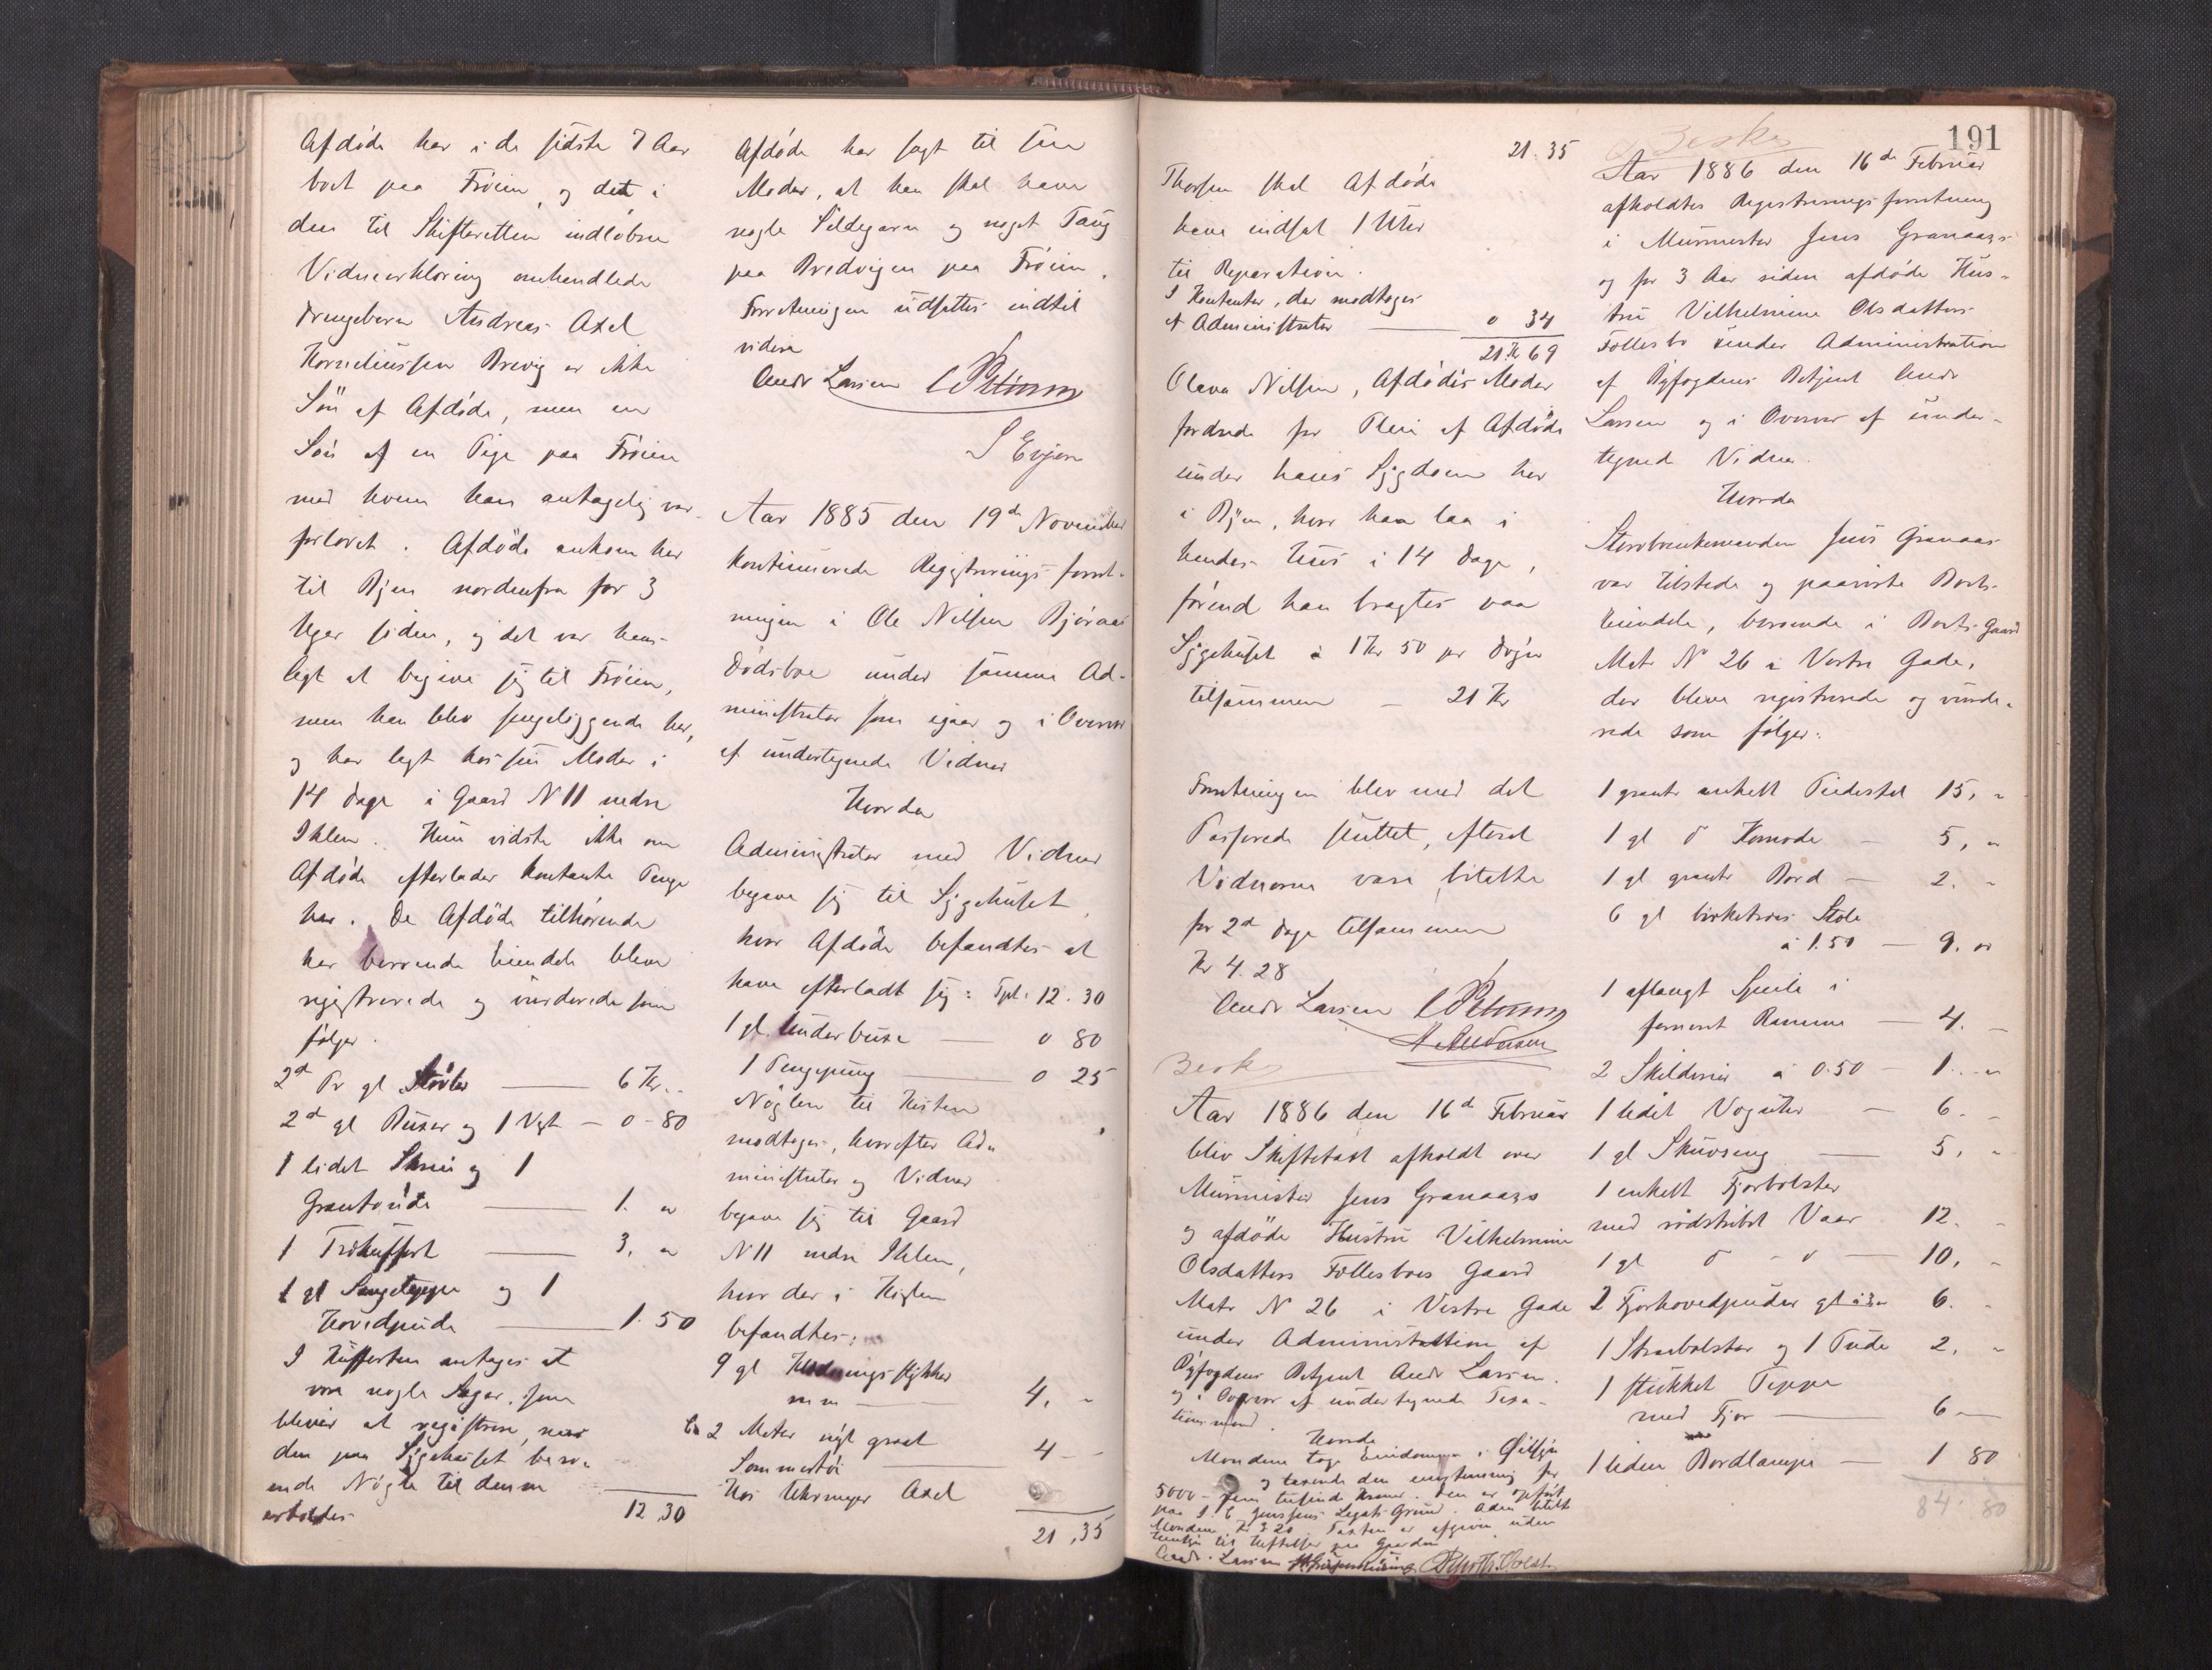 Afdöde har i de sidste 7 Aar
boet paa Fröien, og det i
den til Skifteretten indlöbne
Vidneerklæring omhandlede
Drengebarn Andreas Axel
Korneliussen Brevig er ikke
Sön af Afdöde, men en
Sön af en Pige paa Fröien
med hvem han antagelig var
forlovet. Afdöde ankom her
til Byen nordenfra for 3
Uger siden, og det var hens-
igt at begive sig til Fröien,
men han blev sengeliggende her,
og har lagt hos sin Moder i
14 Dage i Gaard N 11 nedre
Ihlen. Hun vidste ikke om
Afdöde efterlader kontante Penge
her. De Afdöde tilhørende
her beroende Eiendele bleve
registrerede og vurderede som
følger.
2d Par gl Støvler — 6 Kr. "
2d gl Buxer og 1 Vest — 0 - 80
1 lidet Skrin og 1
Grantønde — 1. "
1 Trækuffert — 3. "
1 gl Sengetæppe og 1
Hovedpude — 1. 50
I Kufferten antages at
være nogle Sager, som
bliver at registrere, naar
den paa Sygehuset bero-
ende Nögle til denne
erholdes
12.30
Afdöde har sagt til sin
Moder, at han skal have
nogle Sildegarn og noget Taug
paa Bredvigen paa Fröien.
Forretningen udsattes indtil
videre
Andr Larsen
S Evjen
Aar 1885 den 19de November
kontinuerede Registreringsforret-
ningen i Ole Nilsen Björaas
Dödsboe under samme Ad-
ministrator som igaar og i Overvær
af undertegnede Vidner
Hvorda
Administrator med Vidner
begave sig til Sygehuset,
hvor Afdöde befandtes at
have efterladt sig: Tpt. 12.30
1 gl. Underbuxe — 0 80
1 Pengepung — 0 25
Nöglen til Kisten
modtoges, hvorefter Ad-
ministrator og Vidner
begave sig til Gaard
N 11 nedre Ihlen,
hvor der i Kisten
befandtes:
9 gl Klædningsstykker
m m — 4. "
2 Meter nyt graat
Sommertöi — 4 -
Hos Uhrmager Axel
21.35
191
21.35
Thorsen skal Afdöde
have indsat 1 Uhr
til Reparation.
I Kontanter, der modtoges
af Administrator — 0 34
21 Kr 69
Olava Nilsen, Afdödes Moder
fordrede for Pleie af Afdöde
under hans Sygdom her
i Byen, hvor han laa i
hendes Hus i 14 Dage,
förend han bragtes paa
Sygehuset à 1 Kr 50 pr Døgn
tilsammen — 21 Kr
Forretningen blev med det
Passerede sluttet, efterat
Vidnerne vare betalte
for 2de Dage tilsammen
Kr 4.28
Andr Larsen
Besk
Aar 1886 den 16de Februar
blev Skiftetaxt afholdt over
Murmester Jens Granaas's
og afdöde Hustru Vilhelmine
Olsdatters Fællesboes Gaard
Matr N 26 i Vestre Gade
under Administration af
Byfogdens Betjent Andr Larsen.
og i Overvær af undertegnede Taxa-
tionsmænd.
Hvorda
Mændene tog Eiendommen i Øiesyn
og taxerede den enstemmig for
5000 - fem tusinde Kroner. Den er opført
paa Legats Grund.
Mændene Kr 3.20. Taxten er afgiven uden
Hensyn til Heftelser paa Gaarden
Andr. Larsen
Besk
Aar 1886 den 16de Februar
afholdtes Registreringsforretning
i Murmester Jens Granaas's
og for 3 Aar siden afdöde Hus-
tru Vilhelmine Olsdatters
Fællesbo under Administration
af Byfogdens Betjent Andr
Larsen og i Overvær af under-
tegnede Vidner.
Hvorda
Sterboenkemanden Jens Granaas
var tilstede og paaviste Boets
Eiendele, beroende i Boets Gaard
Matr N 26 i Vestre Gade,
der bleve registrerede og vurde-
rede som følger:
1 graat enkelt Pidestal 15. "
1 gl do Komode — 5. "
1 gl graat Bord — 2. "
6 gl birketræes Stole
à 1.50 — 9. "
1 aflangt Speile i
fernert Ramme — 4. -
2 Skilderier à 0.50 — 1. "
1 lidet Væguhr — 6. -
1 gl Skuvseng — 5. "
1 enkelt Fjærbolster
med rødstribet Vaar 12. -
1 gl do - do — 10. -
2 Fjærhovedpuder gl 6. -
1 Straabolster og 1 Pude 2. "
1 stukket Teppe
med Fjær — 6 —
1 liden Bordlampe — 1 80
84. 80